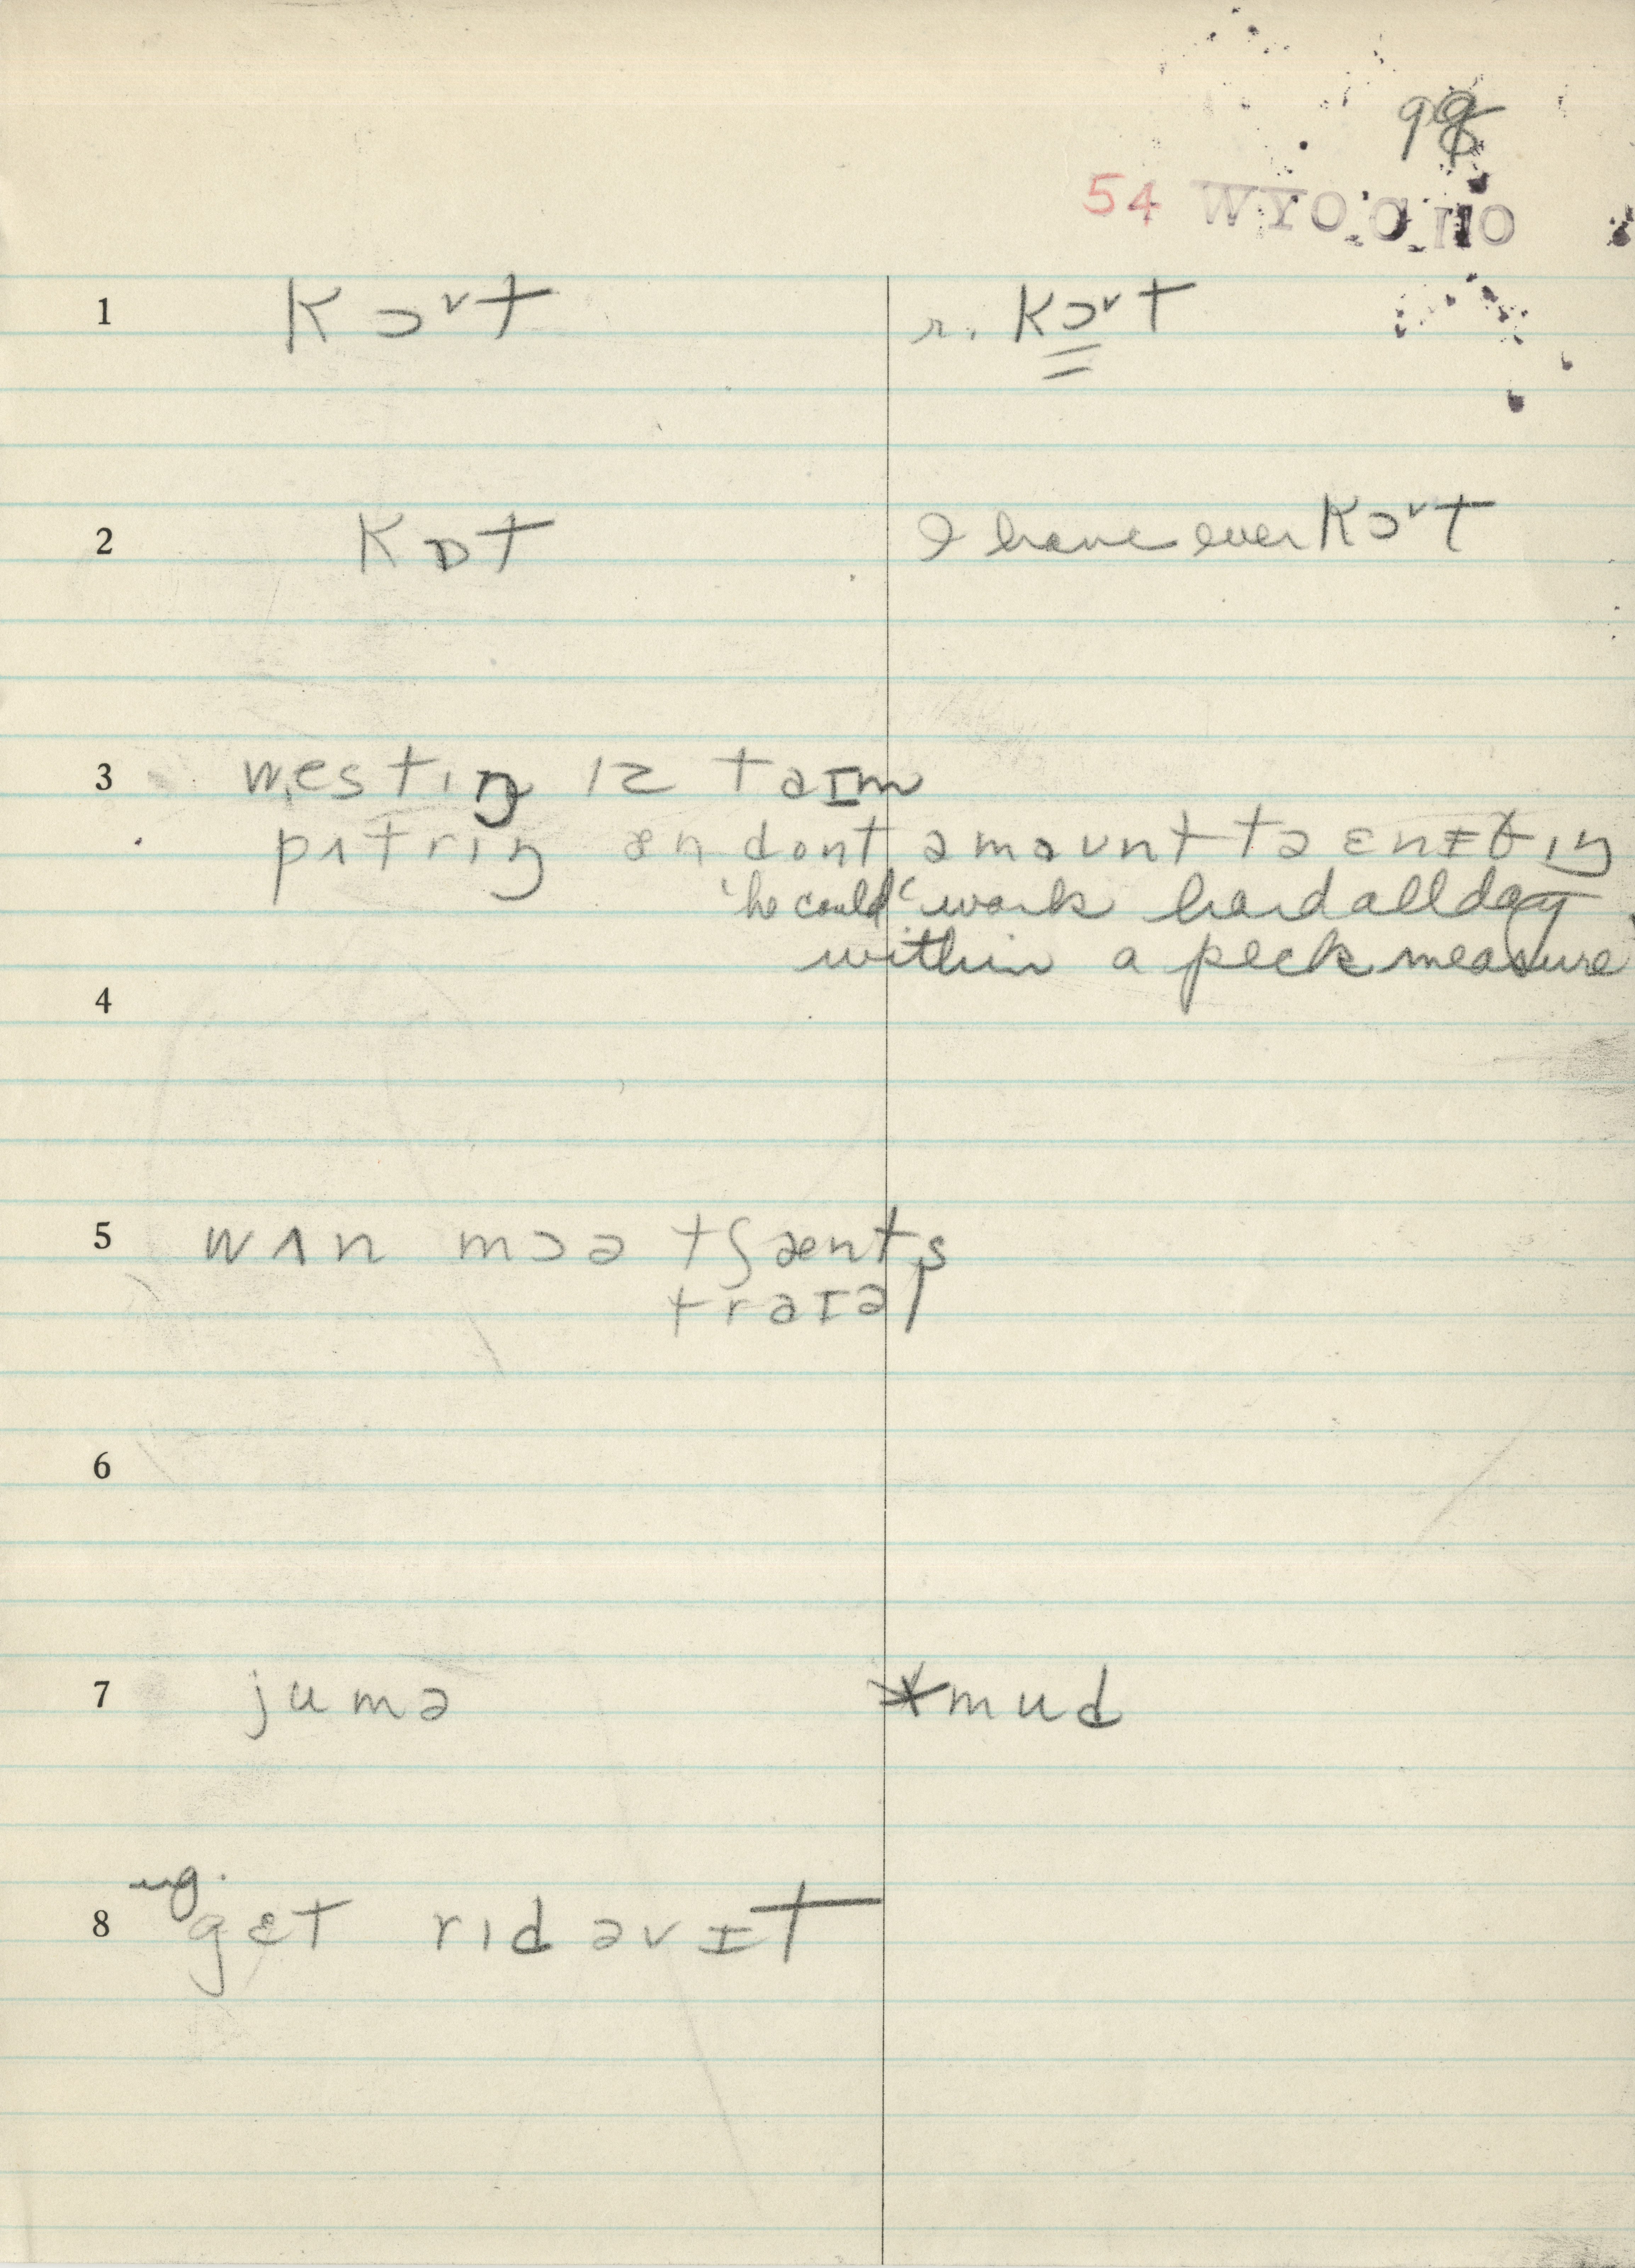 98
54 WYOCNO
1 kɔᵛt r. kɔᵛt
2 kɒt I have ever kɔᵛt
3 westɪŋ ɪz taɪm
pʌtrɪŋ ən dont əmaʊnt tə ɛnɪθɪŋ
'he could' work hard all day
within a peck measure
4
5 wʌn mɔə tʃænts
traɪəl
6
7 jumə *mud
8 ug. gɛt rɪd əv ɪt